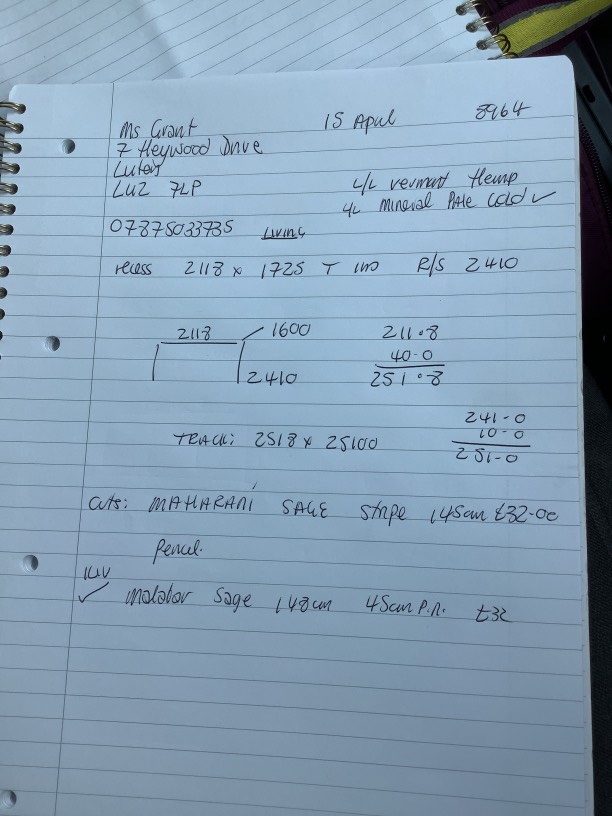 Ms Grant 15 April 8964
7 Heywood Drive
Luton
LU2 7LP
L/L vermont Hemp
L/L Mineral Pale Gold ✓
07875033735 LIVING
recess 2118 x 1725 T R/S 2410
2118 1600
2410
211.8
40-0
251.8
241-0
10-0
251-0
TRACK: 2518 x 25100
Cuts: MAHARANI SAGE Stripe 145cm £32-00
Pencil.
✓ Malabar Sage 148cm 45cm P.R. £32